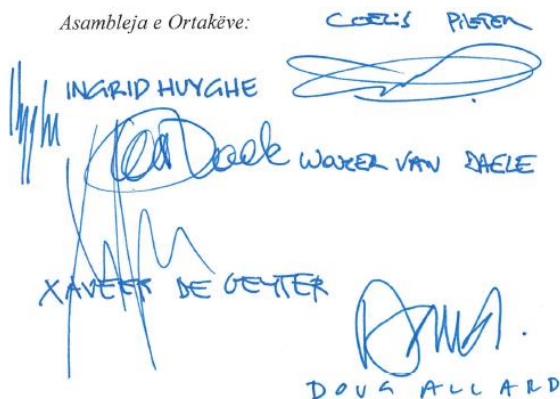 Asambleja e Ortakëve:
COELIS PIETER
INGRID HUYGHE
WOUTER VAN DAELE
XAVEER DE GEYTER
DOUG ALLARD